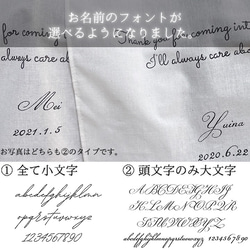 お名前のフォントが
選べるようになりました
for coming into
I'll always care abo
Thank you for coming int
I'll always care about
Mei
2021.1.5
Yuina
2020.6.22
お写真はどちらも②のタイプです。
① 全て小文字
abcdefghijklmn
opqrstuvwxyz
1234567890
② 頭文字のみ大文字
ABCDEFGHIJ
KLMNOPQR
STUVWXYZ
abcdefghijklmnopqrstuvwxyz 1234567890